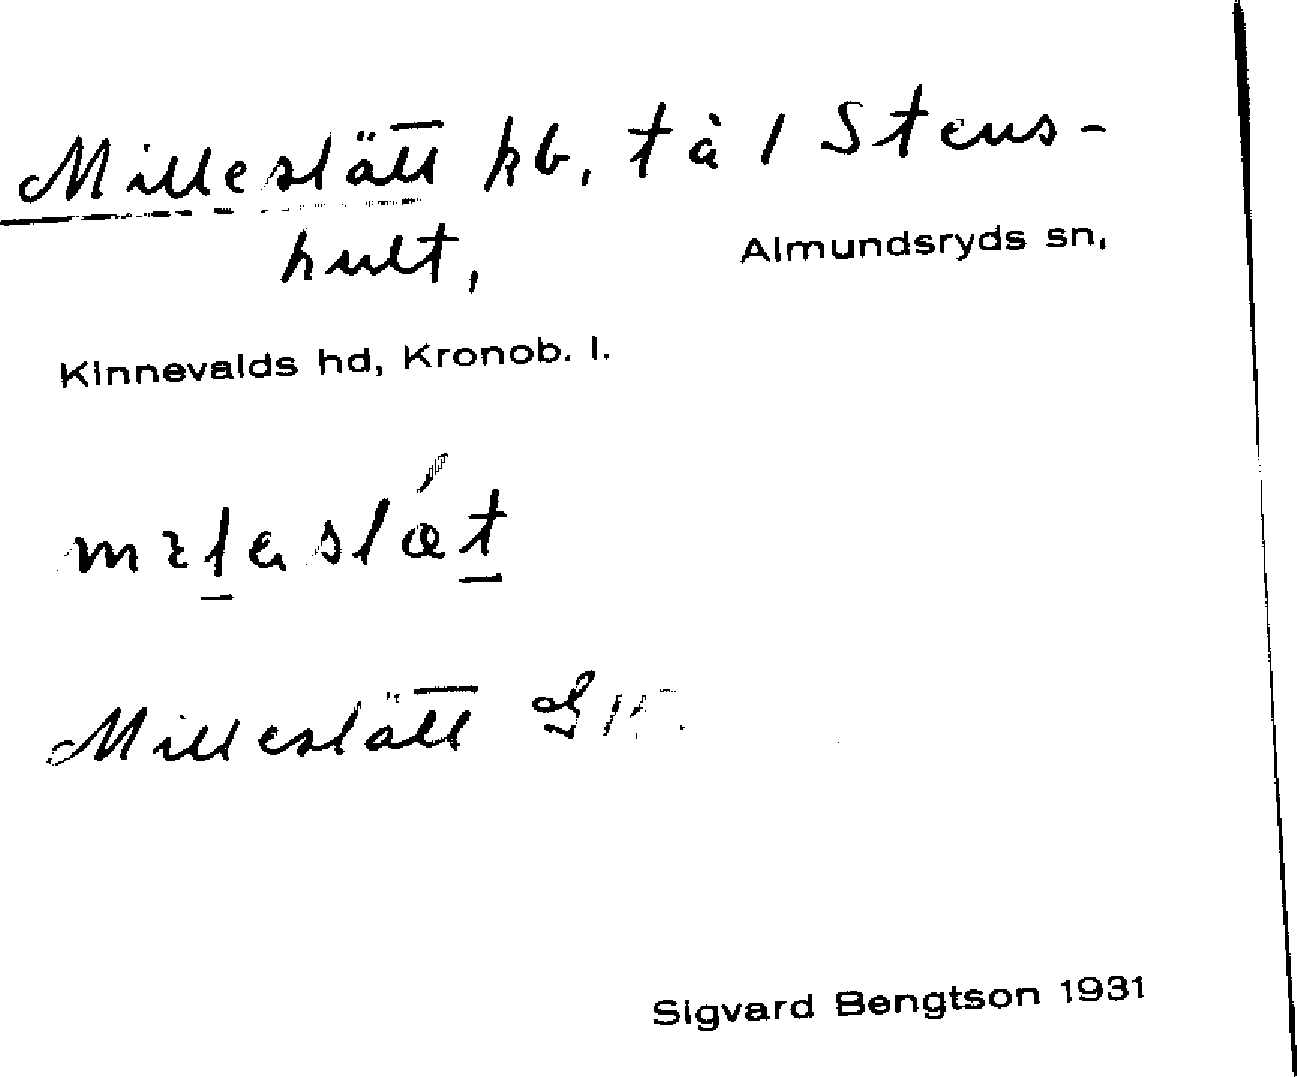 Milleslätt hb, t à 1 Stens-
hult,
Almundsryds sn,
Kinnevalds hd, Kronob. l.
Milleslätt
Sigvard Bengtson 1931